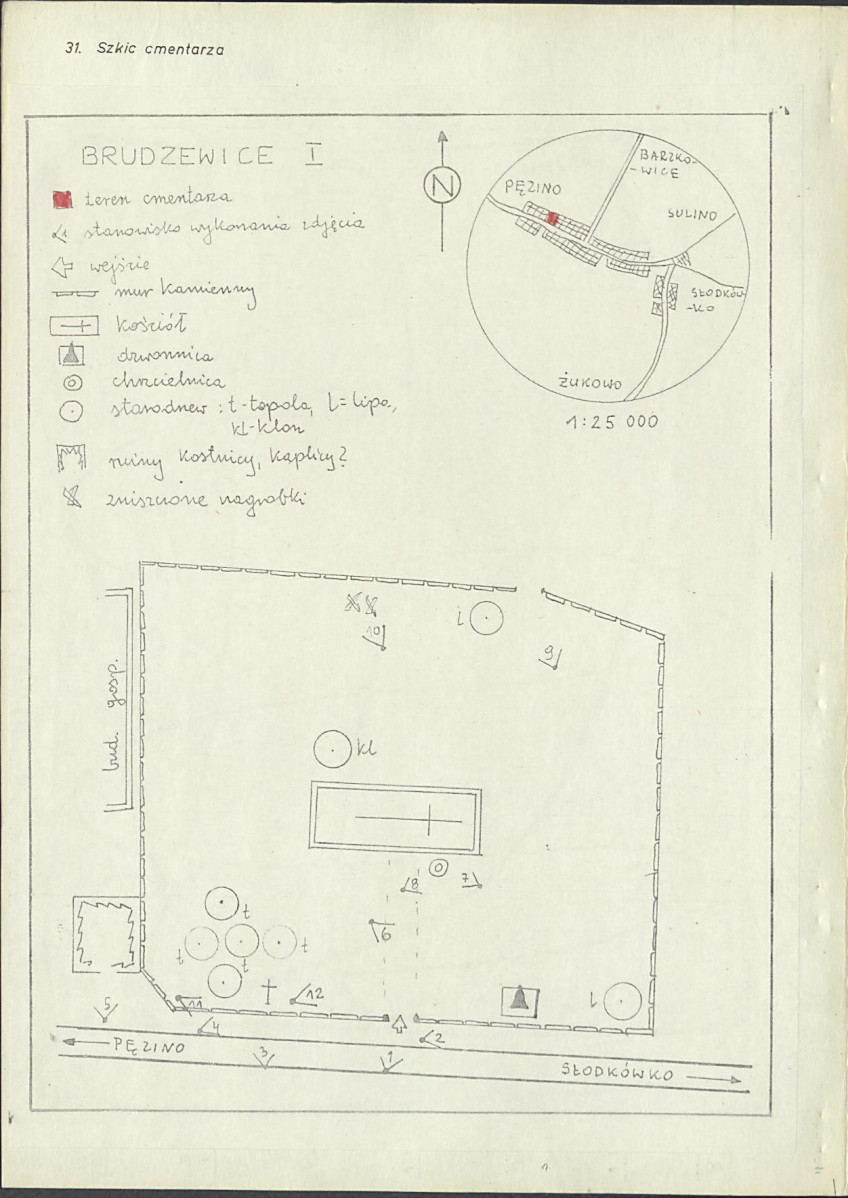 31. Szkic cmentarza
BRUDZEWICE I
teren cmentarza
stanowisko wykonania zdjęcia
wejście
mur kamienny
kościół
dzwonnica
chrzcielnica
starodrzew : t-topola, l=lipa,
kl-klon
ruiny kostnicy, kaplicy?
zniszczone nagrobki
N
BARZKO-
-WICE
PĘZINO
SULINO
SŁODKÓW-
-KO
ŻUKOWO
1:25 000
10
l
9
bud. gosp.
kl
8
7
t
6
t
t
t
11
12
l
5
4
2
PĘZINO
3
1
SŁODKÓWKO